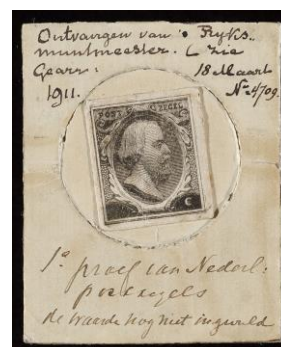 Ontvangen van 's Ryks
muntmeester. ( zie
Gearr: 18 Maart
1911. No 4709.
POST ZEGEL
C
1e proef van Nederl:
postzegels
de waarde nog niet ingevuld